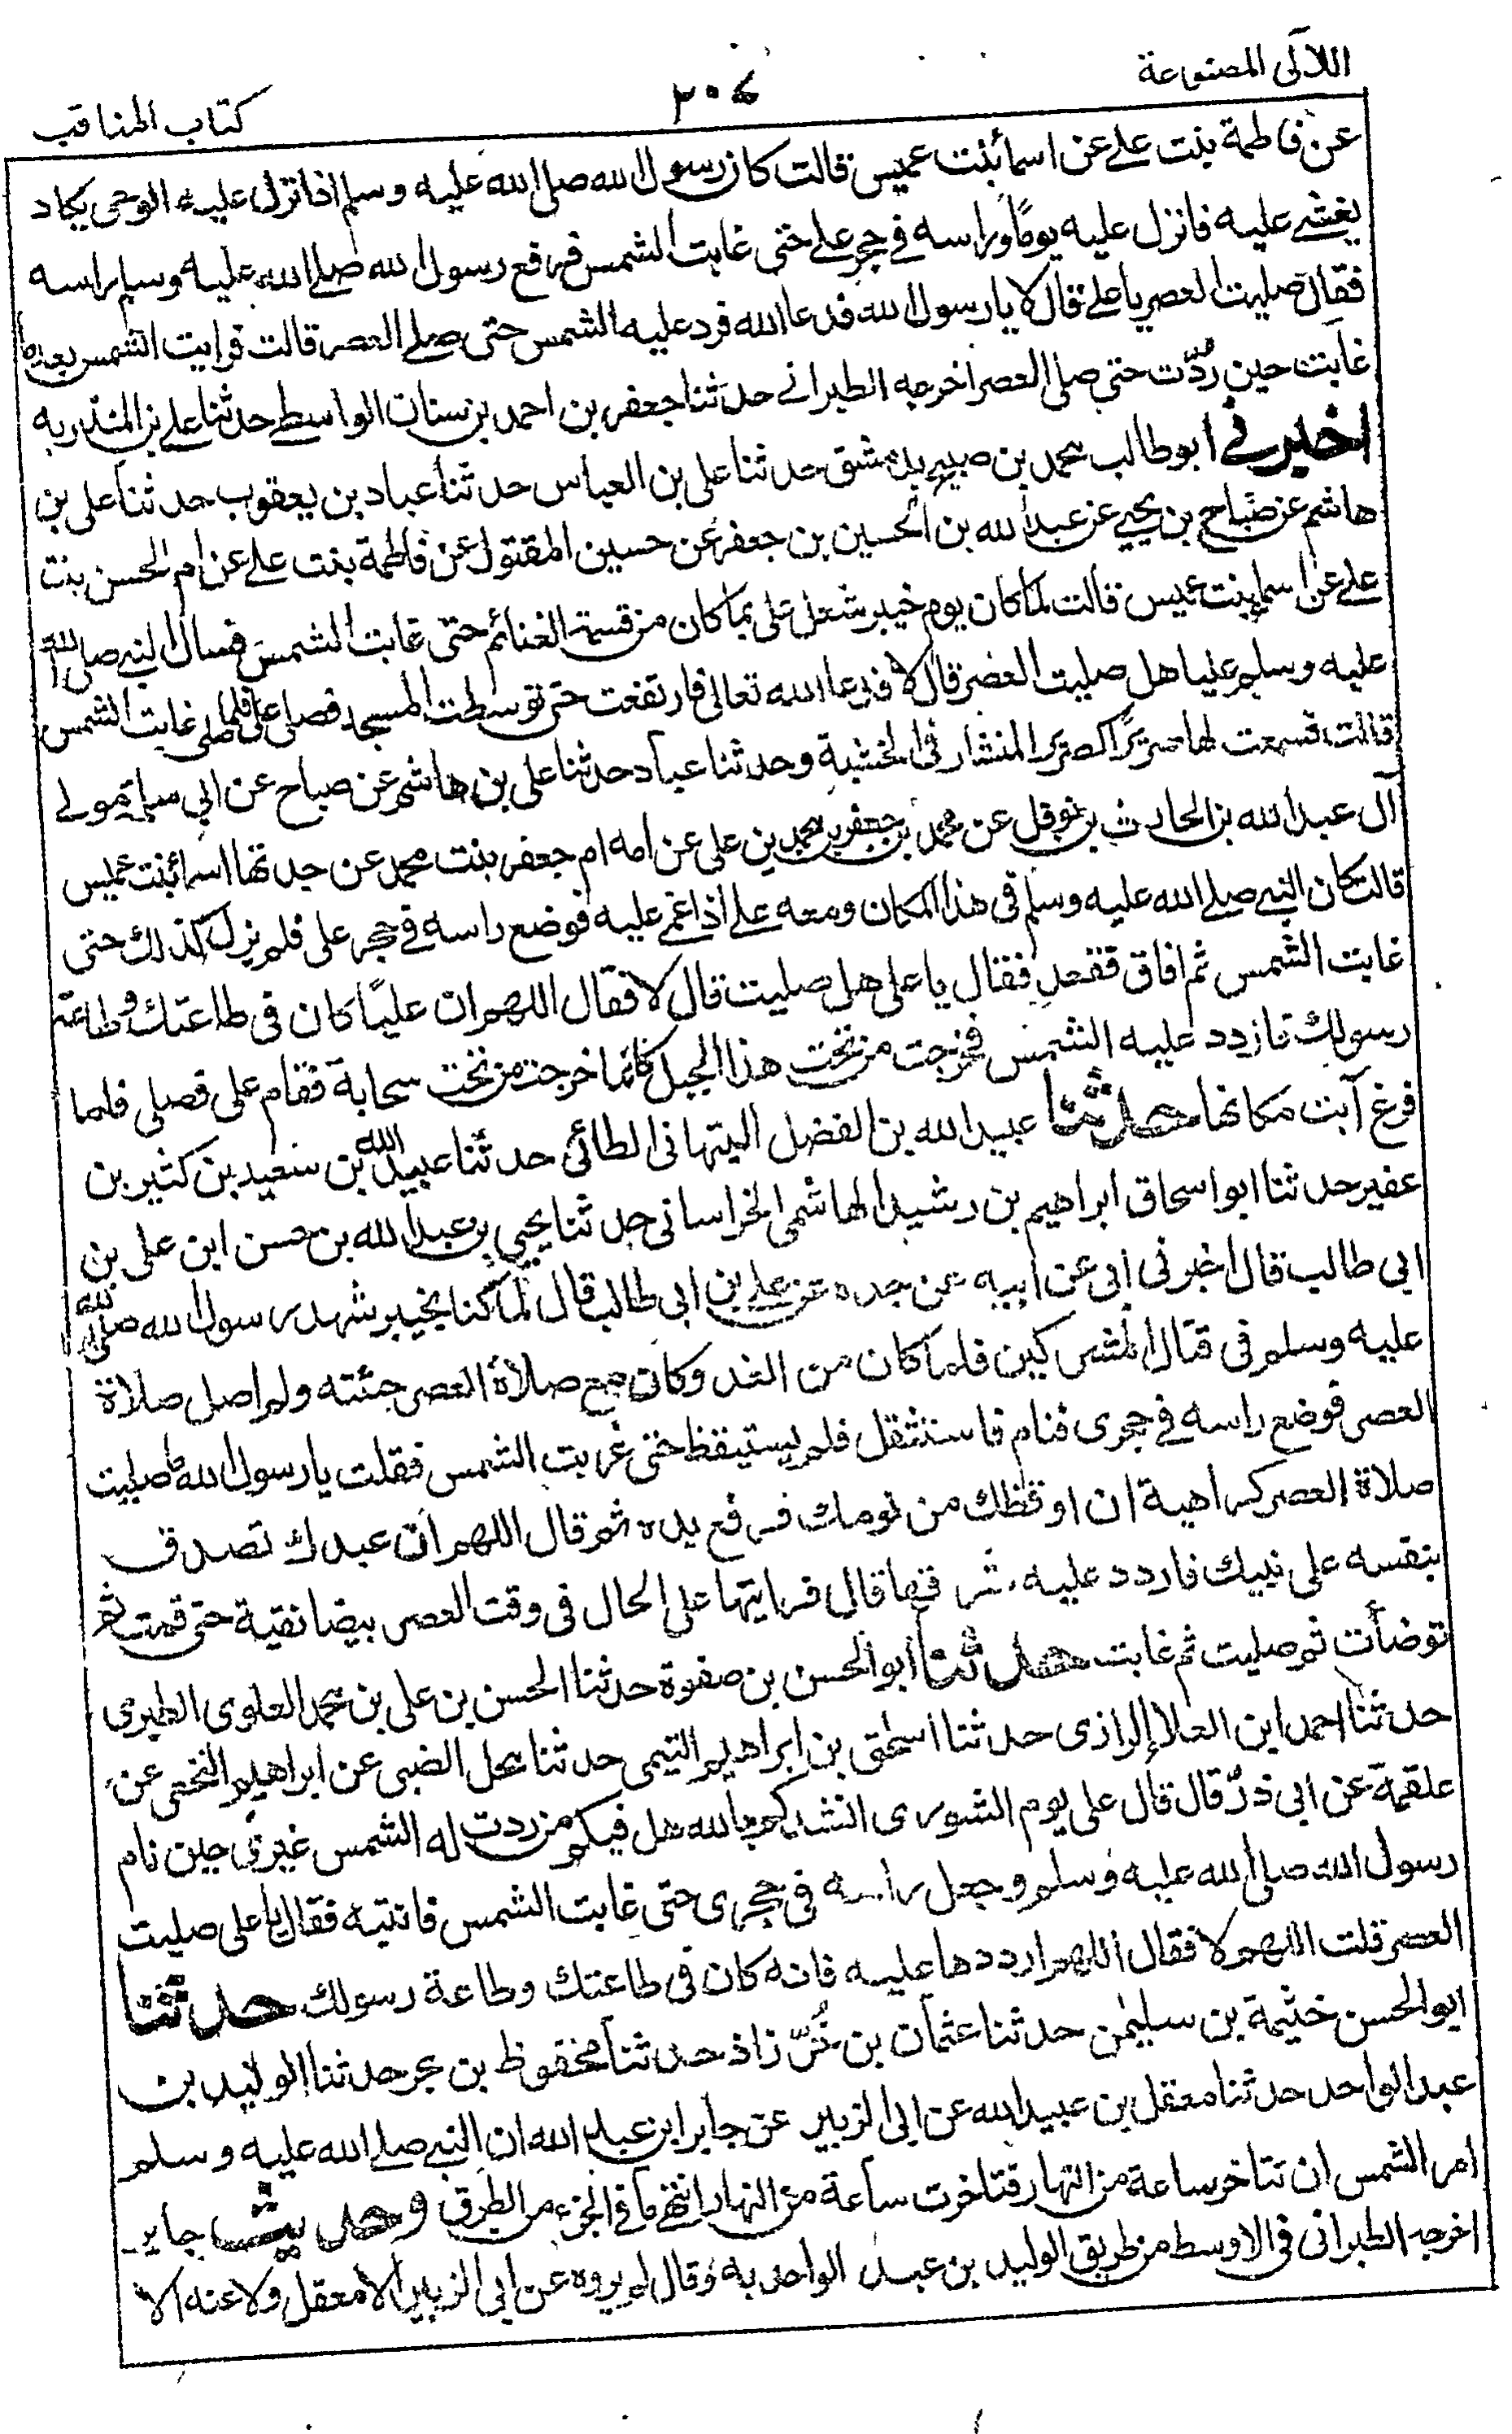 اللآلى المصنوعة
٢٠٤
كتاب المناقب
عن فاطمة بنت علے عن اسمائبنت عميس قالت كان رسول الله صلى الله عليه وسلم اذا نزل عليه الوحى يكاد
يغشے عليه فانزل عليه يوماً وراسه فے حجر علے حتى غابت الشمس فرفع رسول الله صلے الله عليه وسلم راسه
فقال صليت العصر يا علے قال لا يا رسول الله فدعا الله فرد عليه الشمس حتى صلے العصر قالت فرايت الشمس بعد ما
غابت حين رُدّت حتى صلى العصر اخرجه الطبرانے حدثنا جعفر بن احمد بن سنان الواسطے حدثنا علے بن المنذر به
اخبرنے ابو طالب محمد بن صبيح بدمشق حدثنا على بن العباس حدثنا عباد بن يعقوب حدثنا على بن
هاشم عن صباح بن يحيے عن عبد الله بن الحسين بن جعفر عن حسين المقتول عن فاطمة بنت علے عن ام الحسن بنت
علے عن اسما بنت عميس قالت لما كان يوم خيبر شغل على بما كان من قسمة الغنائم حتى غابت الشمس فسال النبے صلى الله
عليه وسلم عليا هل صليت العصر قال لا فدعا الله تعالى فارتفعت حتى توسطت المسجد فصلى على فلما صلى غابت الشمس
قالت فسمعت لها صريرًا كصرير المنشار فى الخشبة وحدثنا عباد حدثنا على بن هاشم عن صباح عن ابى سلمة مولے
آل عبد الله بن الحارث بن نوفل عن محمد بن جعفر بن محمد بن على عن امه ام جعفر بنت محمد عن جدتها اسمائبنت عميس
قالت كان النبے صلے الله عليه وسلم فى هذا المكان ومعه علے اذ اغمے عليه فوضع راسه فے حجر على فلم يزل كذلك حتى
غابت الشمس ثم افاق فقعد فقال يا على هل صليت قال لا فقال اللهم ان عليًا كان فى طاعتك وطاعة
رسولك فازدد عليه الشمس فخرجت من تحت هذا الجبل كانما خرجت من تحت سحابة فقام على فصلى فلما
فرغ آبت مكانها حدثنا عبيد الله بن الفضل اليتهانى الطائى حدثنا عبيد الله بن سعيد بن كثير بن
عفير حدثنا ابو اسحاق ابراهيم بن رشيد الهاشمى الخراسانى حدثنا يحيي بن عبد الله بن حسن ابن على بن
ابى طالب قال اخبرنى ابى عن ابيه عن جده عن علے بن ابى طالب قال لما كنا بخيبر شهد رسول الله صلى الله
عليه وسلم فى قتال المشركين فلما كان من الغد وكان مع صلاة العصر جئته ولم اصل صلاة
العصر فوضع راسه فے حجرى فنام فاستثقل فلم يستيقظ حتى غربت الشمس فقلت يا رسول الله ما صليت
صلاة العصر كراهية ان اوقظك من نومك فرفع يده ثم قال اللهم ان عبدك تصدق
بنفسه على نبيك فاردد عليه شرقها قال فرايتها على الحال فى وقت العصر بيضا نقية حتى قمت ثم
توضأت ثم صليت ثم غابت حدثنا أبو الحسن بن صفوة حدثنا الحسن بن على بن محمد العلوى الطبرى
حدثنا احمد ابن العلا الرازى حدثنا اسحٰق بن ابراهيم التيمى حدثنا محل الضبى عن ابراهيم النخعى عن
علقمة عن ابى ذرّ قال قال على يوم الشورى انشدكم بالله هل فيكم من ردت له الشمس غيرى حين نام
رسول الله صلى الله عليه وسلم وجعل راسه فى حجرى حتى غابت الشمس فانتبه فقال يا على صليت
العصر قلت اللهم لا فقال اللهم ارددها عليه فانه كان فى طاعتك وطاعة رسولك حدثنا
ابو الحسن خثيمة بن سليمٰن حدثنا عثمان بن خُرّزاذ حدثنا محفوظ بن بحر حدثنا الوليد بن
عبد الواحد حدثنا معقل بن عبيد الله عن ابى الزبير عن جابر ابن عبد الله ان النبے صلے الله عليه وسلم
امر الشمس ان تتاخر ساعة من النهار فتاخرت ساعة من النهار انتهے ما فے الجزء من الطرق وحديث جابر
اخرجه الطبرانى فى الاوسط من طريق الوليد بن عبد الواحد به وقال لم يروه عن ابى الزبير الا معقل ولا عنه الا